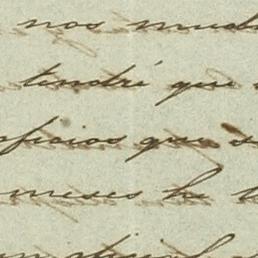 nos mud
tendré que
oficios que s
meses he t